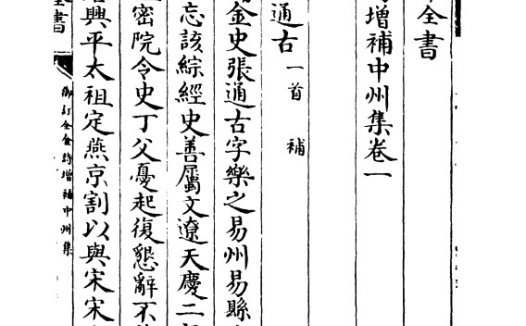 全書
增補中州集卷一
通古 一首 補
金史張通古字樂之易州易縣
忘該綜經史善屬文遼天慶二
密院令史丁父憂起復懇辭不
興平太祖定燕京割以與宋宋
全書 御訂全金詩增補中州集